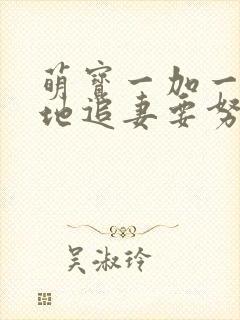 萌宝一加一
地追妻要努
吴淑玲